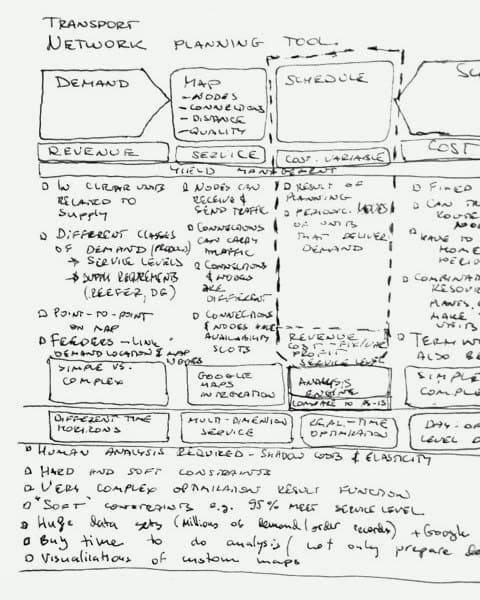 TRANSPORT
NETWORK PLANNING TOOL
DEMAND
REVENUE
MAP
- NODES
- CONNECTIONS
- DISTANCE
- QUALITY
SERVICE
SCHEDULE
COST-VARIABLE
COST
YIELD MANAGEMENT
IN CLEAR UNITS
RELATED TO
SUPPLY
DIFFERENT CLASSES
OF DEMAND
→ SERVICE LEVELS
→ SUPPLY REQUIREMENTS
(REEFER, DG)
POINT-TO-POINT
ON MAP
FEEDERS - LINK
DEMAND LOCATION & MAP
NODES
NODES CAN
RECEIVE &
SEND TRAFFIC
CONNECTIONS
CAN CARRY
TRAFFIC
CONNECTIONS
& NODES
ARE
DIFFERENT
CONNECTIONS
& NODES HAVE
AVAILABILITY
SLOTS
RESULT OF
PLANNING
PERIODIC MOVES
OF UNITS
THAT DELIVER
DEMAND
REVENUE
COST - FIX/VAR
PROFIT
SERVICE LEVEL
FIXED
CAN
HAVE TO
HOME
MAKE
UNITS
ALSO BE
SIMPLE VS.
COMPLEX
GOOGLE
MAPS
INTEGRATION
ANALYSIS
ENGINE
COMPARE TO AS-IS
DIFFERENT TIME
HORIZONS
MULTI-DIMENSION
SERVICE
REAL-TIME
OPTIMISATION
DAY-OF
LEVEL
HUMAN ANALYSIS REQUIRED - SHADOW COSTS & ELASTICITY
HARD AND SOFT CONSTRAINTS
VERY COMPLEX OPTIMISATION RESULT FUNCTION
"SOFT" CONSTRAINTS E.G. 95% MEET SERVICE LEVEL
Huge data sets (Millions of demand/order records) + Google
Buy time to do analysis (not only prepare
Visualisations of custom maps